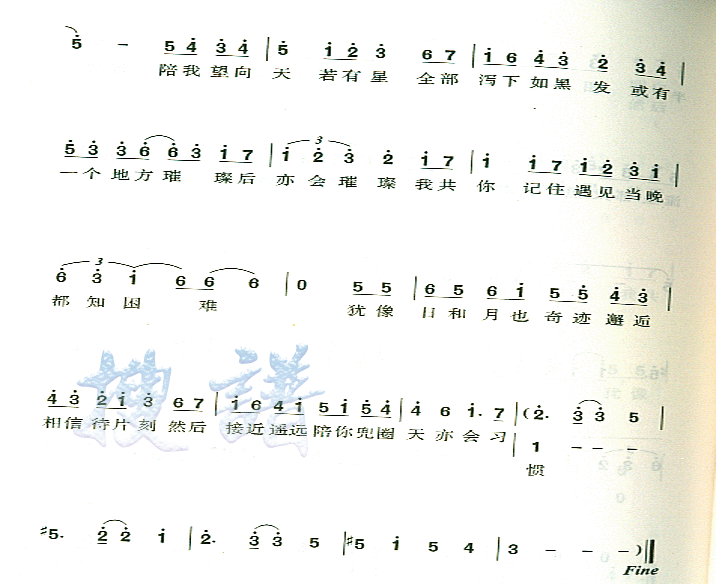 5 - 5 4 3 4 | 5 1 2 3 6 7 | 1 6 4 3 2 3 4 |
陪我望向 天 若有星 全部 泻下如黑 发 或有
5 3 3 6 6 3 1 7 | 1 2 3 2 1 7 | 1 1 7 1 2 3 1 |
一个 地方璀 璨后 亦会璀 璨 我共 你 记住遇见当晚
6 3 1 6 6 6 | 0 5 5 | 6 5 6 1 5 5 4 3 |
都 知 困 难 犹像 日和月也奇迹邂逅
4 3 2 1 3 6 7 | 1 6 4 1 5 1 5 4 | 4 6 1. 7 | (2. 3 3 5 |
相信待片刻 然后 接近遥远陪你兜圈 天亦会习
1 - - -
惯
搜谱
#5. 2 2 1 | 2. 3 3 5 | #5 1 5 4 | 3 - - -) ||
Fine